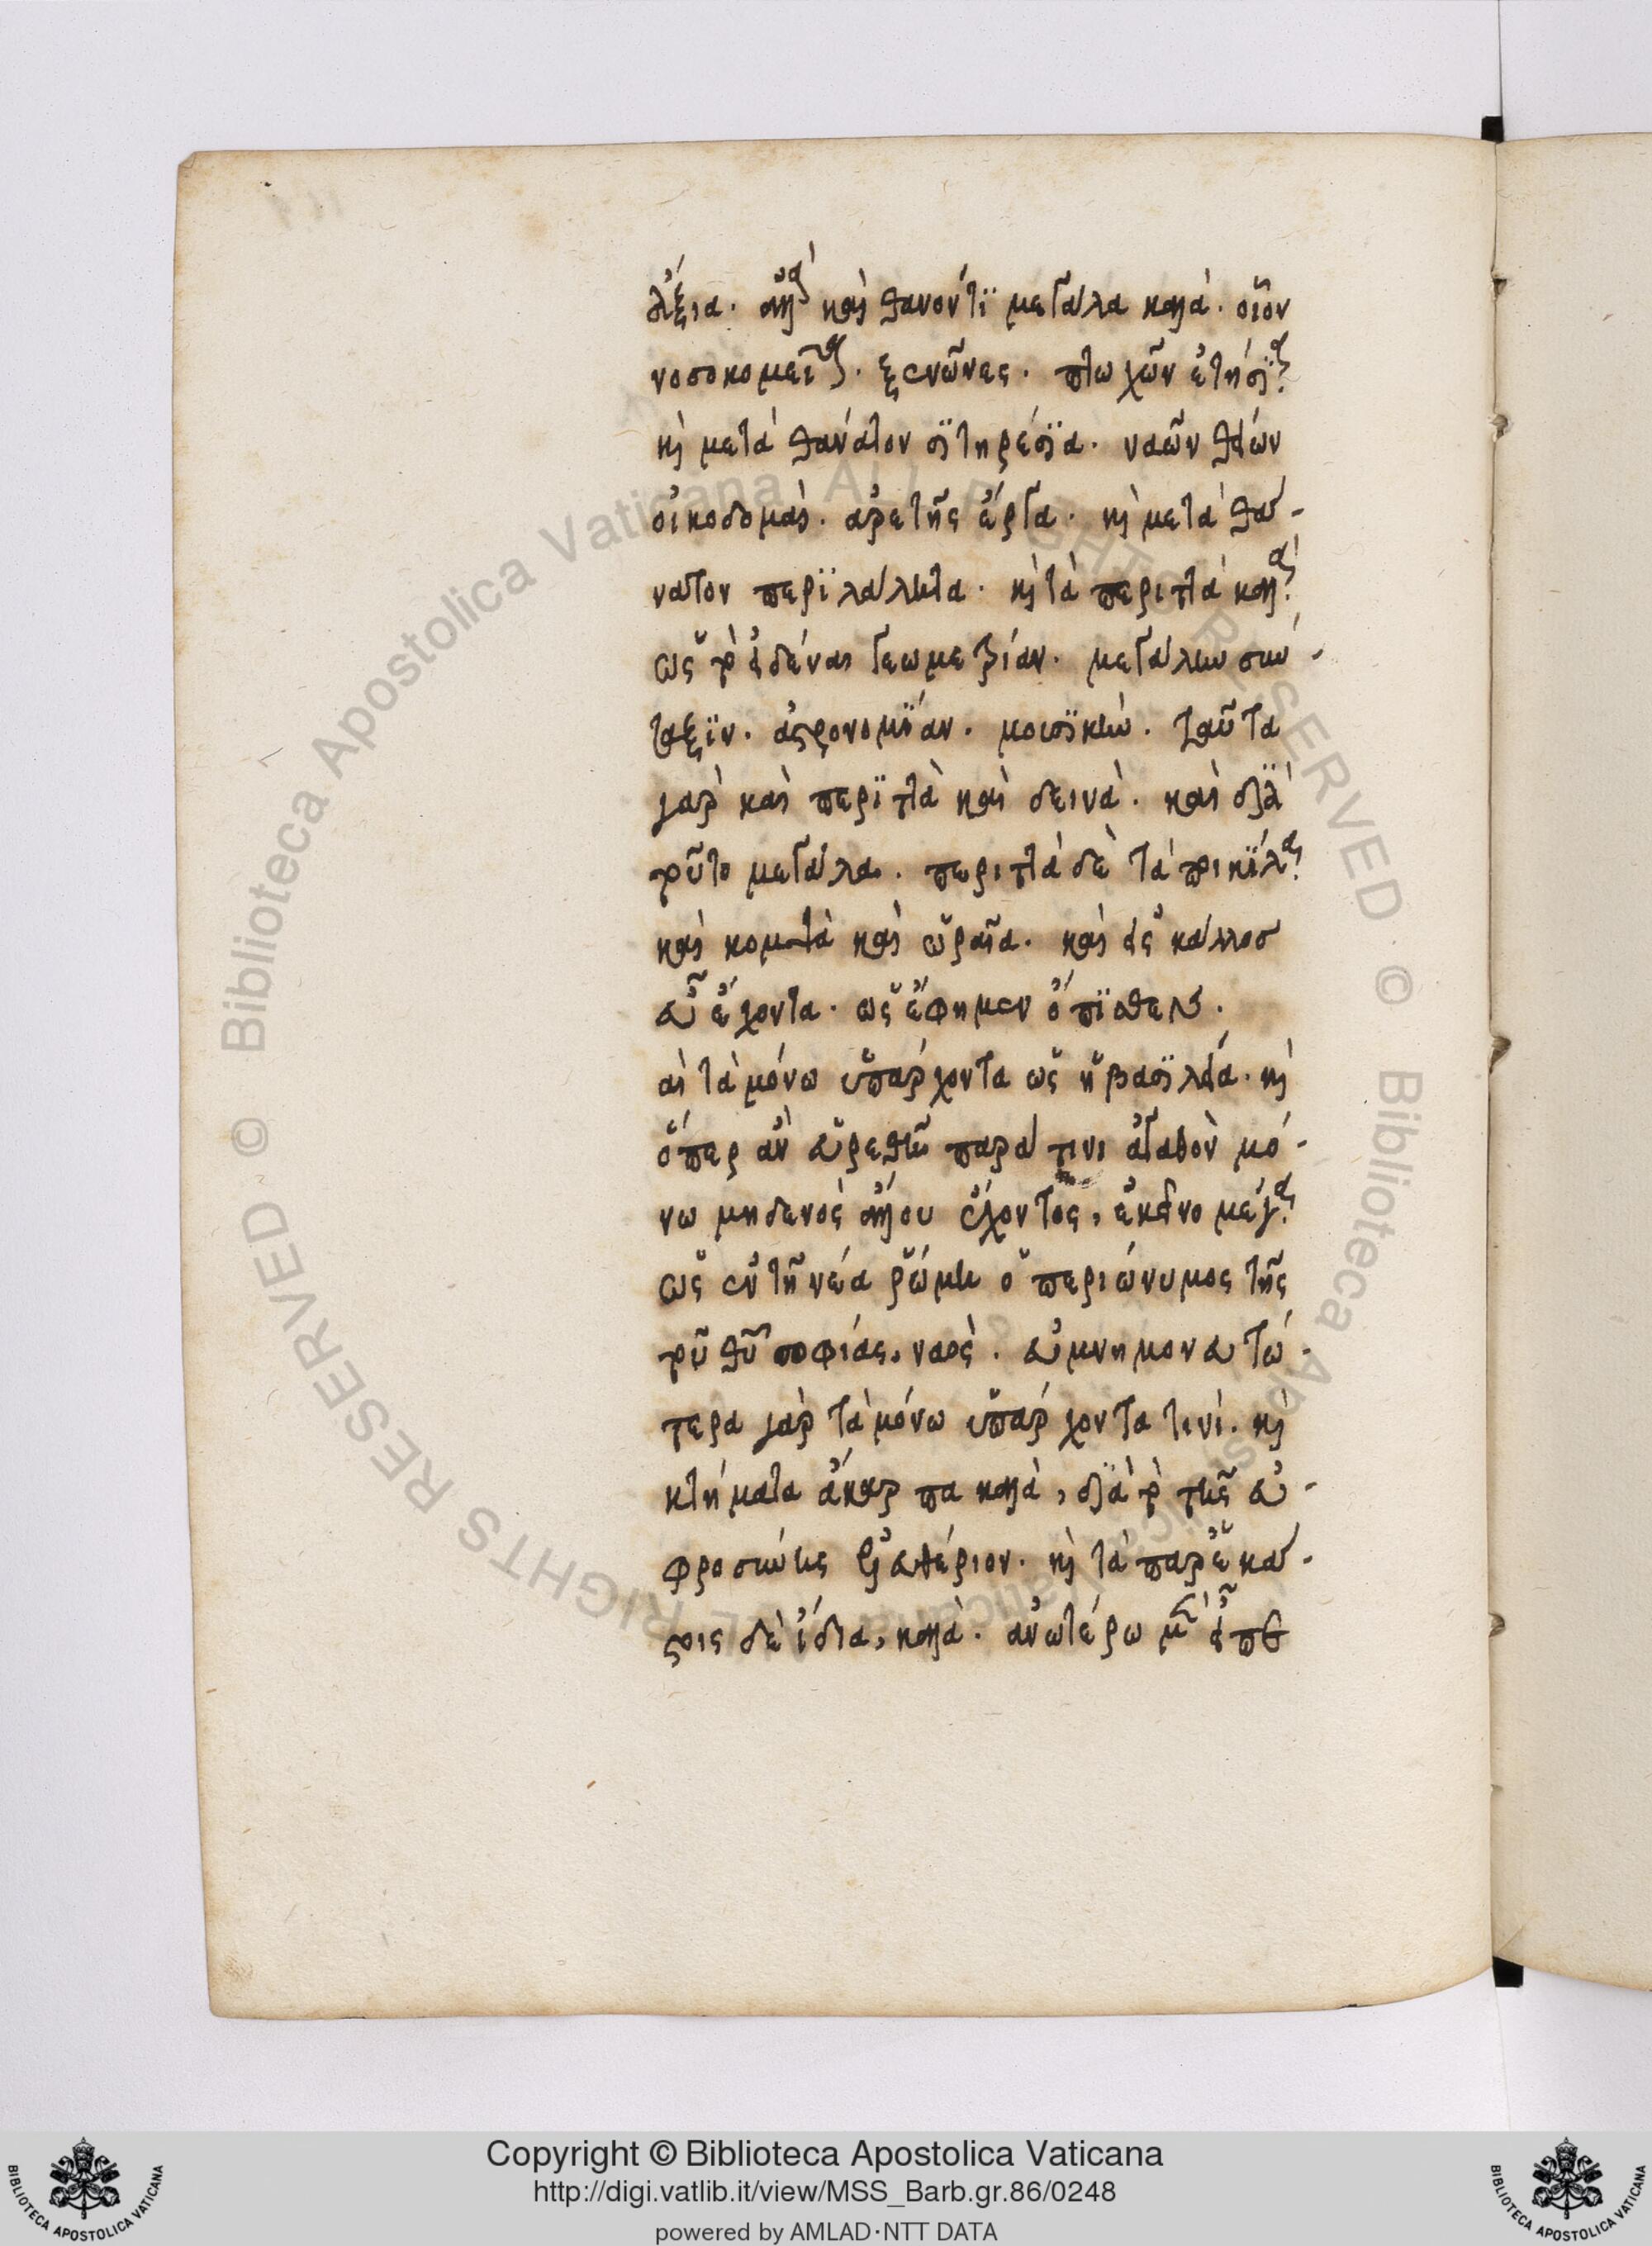 ἄξια. ἀλλὰ καὶ θανόντϊ μεγάλα καλά. οἷον
νοσοκομεῖα. ξενῶνες. πτωχῶν ἐτήσϊα
κὶ μετὰ θανάτον σϊτηρέσϊα. ναῶν θείων
οἰκοδομαὶ. ἀρετῆς ἔργα. κὶ μετὰ θά-
νατον περϊλάλητα. κὶ τὰ περιττὰ καλὰ.
ὡς τὸ εἰδέναι γεωμετρίαν. μεγάλην σύν-
ταξϊν. ἀστρονομΐαν. μουσϊκὴν. ταῦτα
γὰρ καὶ περϊττὰ καὶ δεινὰ. καὶ διὰ
τοῦτο μεγάλα. περιττὰ δὲ τὰ ποικΐλα
καὶ κομπτὰ καὶ ὡραῖα. καὶ εἰς κάλλοσ
εὖ ἔχοντα. ὡς ἔφημεν ὄπϊσθεν.
αὶ τὰ μόνω ὑπάρχοντα ὡς ἡ βασϊλεία. κὶ
ὅπερ ἂν εὑρεθῆ παρά τινι ἀγαθὸν μό-
νω μηδενὸς ἄλλου ἔχοντος, ἐκεῖνο μέγα.
ὡς ἐν τῆ νέα ῥώμη ὁ περιώνυμος τῆς
τοῦ θῦ σοφίας, ναὸς. εὐμνημονευτώ-
τερα γὰρ τὰ μόνω ὑπάρχοντα τινί. κὶ
κτήματα ἄκαρπα καλὰ, διὰ τὸ τῆς εὐ-
φροσύνης ἐλευθέριον. κὶ τὰ παρ' ἑκά-
στοις δὲ ἴδια, καλὰ. ἀνωτέρω μὲν εἶπε